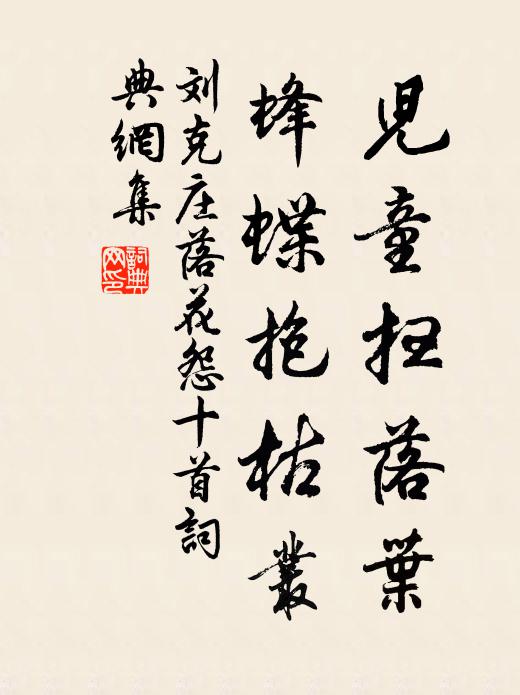 児童扫落葉
蜂蝶抱枯叢
刘克庄落花怨十首詞
典網集
詞典
网印